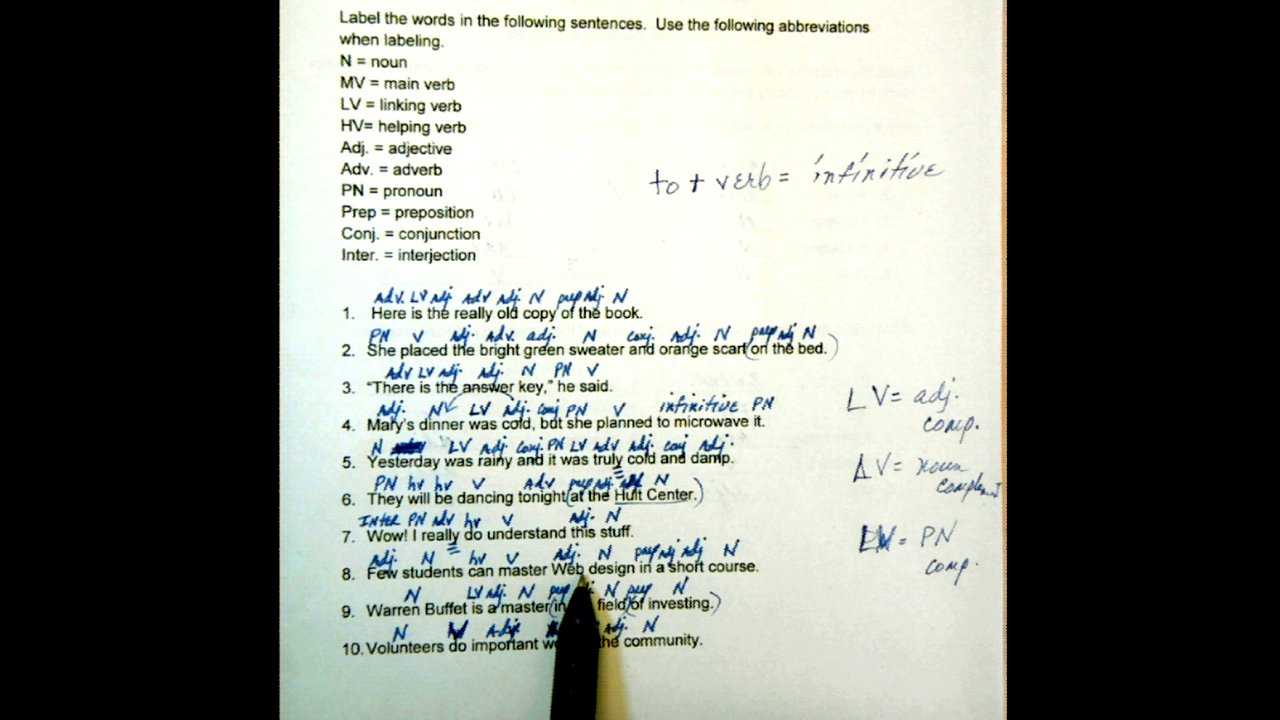 Label the words in the following sentences. Use the following abbreviations
when labeling.
N = noun
MV = main verb
LV = linking verb
HV= helping verb
Adj. = adjective
Adv. = adverb
PN = pronoun
Prep = preposition
Conj. = conjunction
Inter. = interjection
to + verb = infinitive
Adv. LV Adj Adv Adj. N prep Adj N
1. Here is the really old copy of the book.
PN V Adj. Adv. adj. N conj. Adj. N prep Adj N
2. She placed the bright green sweater and orange scarf (on the bed.)
Adv LV Adj. Adj. N PN V
3. "There is the answer key," he said.
Adj. N LV Adj. conj PN V infinitive PN
4. Mary's dinner was cold, but she planned to microwave it.
N LV Adj conj. PN LV Adv Adj. conj Adj.
5. Yesterday was rainy and it was truly cold and damp.
PN hv hv V Adv prep Adj N
6. They will be dancing tonight (at the Hult Center.)
INTER PN Adv hv V Adj. N
7. Wow! I really do understand this stuff.
Adj. N hv V Adj. N prep Adj Adj N
8. Few students can master Web design in a short course.
N LV Adj. N prep N prep N
9. Warren Buffet is a master (in field (of investing.)
N Adj Adj. N
10. Volunteers do important the community.
LV = adj.
comp.
LV = noun
complement
LV = PN
comp.